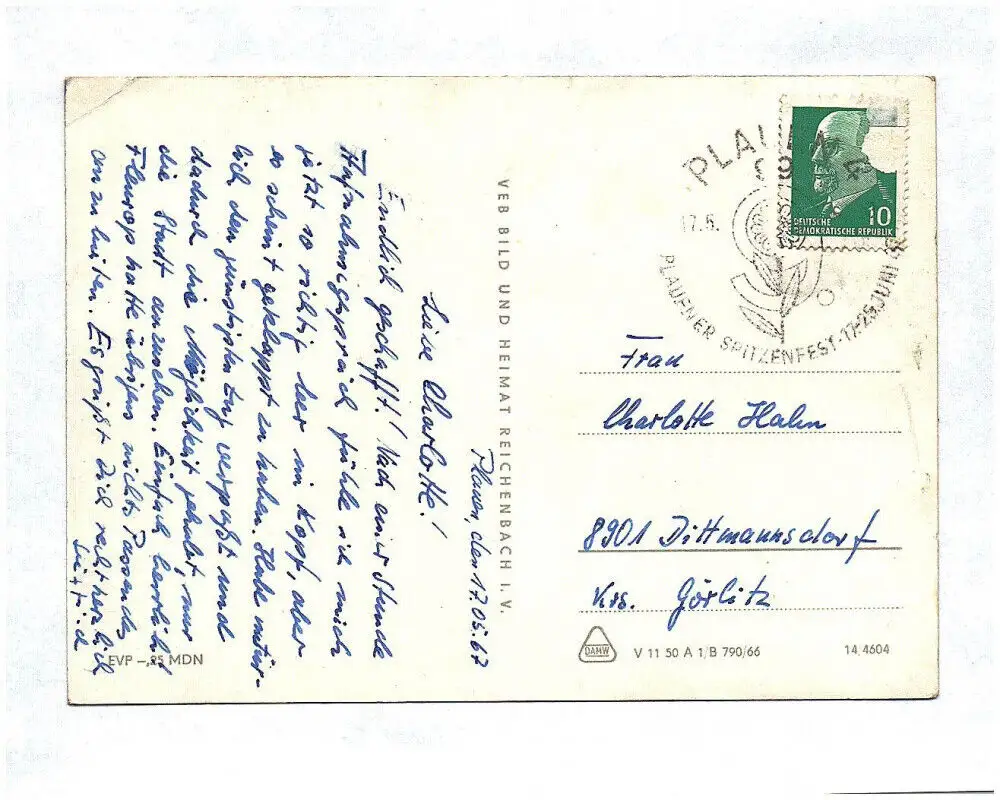 Plauen, den 17.05.67
Liebe Charlotte!
Endlich geschafft! Nach einer Stunde
Aufnahmegespräch fühle ich mich
jetzt so richtig leer im Kopf, aber
es scheint geklappt zu haben. Habe natür-
lich den günstigsten Zug verpaßt und
dadurch die Möglichkeit gehabt, nur
die Stadt anzusehen. Einfach herrlich!
Fleurop hatte übrigens nichts Passendes
anzubieten. Es grüßt Dich recht herzlich
VEB BILD UND HEIMAT REICHENBACH I. V.
EVP –,25 MDN
PLAUEN
17.6.
PLAUENER SPITZENFEST·17-25.JUNI
10
DEUTSCHE
DEMOKRATISCHE REPUBLIK
Frau
Charlotte Hahn
8901 Dittmannsdorf
Krs. Görlitz
DAMW
V 11 50 A 1/B 790/66
14 4604